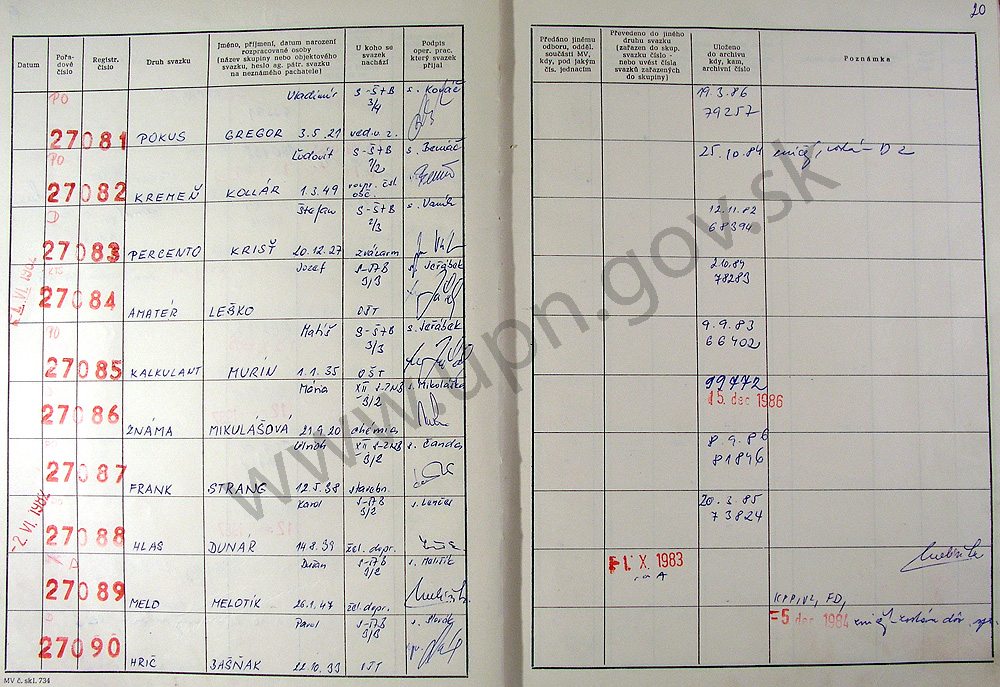 20
Datum
Pořa-
dové
číslo
Registr.
číslo
Druh svazku
Jméno, příjmení, datum narození
rozpracované osoby
(název skupiny nebo objektového
svazku, heslo ag. pátr. svazku
na neznámého pachatele)
U koho se
svazek
nachází
Podpis
oper. prac.
který svazek
přijal
Předáno jinému
odboru, odděl.
součásti MV,
kdy, pod jakým
čís. jednacím
Převedeno do jiného
druhu svazku
(zařazen do skup.
svazku číslo -
nebo uvést čísla
svazků zařazených
do skupiny)
Uloženo
do archivu
kdy, kam,
archivní číslo
Poznámka
PO
27081
POKUS
Vladimír
GREGOR 3.5.21
S-ŠtB
3/4
s. Kováč
19.3.86
79257
PO
27082
KREMEŇ
Ľudovít
KOLLÁR 1.3.49
S-ŠtB
7/2
s. Benáč
25.10.84
D
27083
PERCENTO
Štefan
KRIŠŤ 20.12.27
S-ŠtB
2/3
zvázarm
s. Vaník
12.11.82
68394
1. VI. 1982
27084
AMATÉR
Jozef
LEŠKO
S-ŠTB
3/3
OŠT
s. Jeřábek
2.10.84
78283
PO
27085
KALKULANT
Matúš
MURÍN 1.1.35
S-ŠtB
3/3
OŠT
s. Jeřábek
9.9.83
66402
27086
ZNÁMA
Mária
MIKULÁŠOVÁ 21.9.20
XII S-ZNB
3/2
chémia
s. Mikoláška
99772
15. dec 1986
27087
FRANK
Ulrich
STRANG 12.5.38
XII S-ZNB
3/2
s. Čanda
8.9.86
81846
-2. VI. 1982
27088
HLAS
Karol
DUNÁR 14.8.39
S-ŠTB
3/2
žel. dopr.
s. Lenčéš
20.3.85
73824
A
27089
MELD
Dušan
MELOTÍK 26.1.47
S-ŠTB
3/2
žel. dopr.
s. Mališík
-1. X. 1983
27090
HRIČ
Pavol
BAŠŇÁK 22.10.33
S-ŠTB
3/3
OŠT
-5 dec 1984
MV č. skl. 734
www.upn.gov.sk